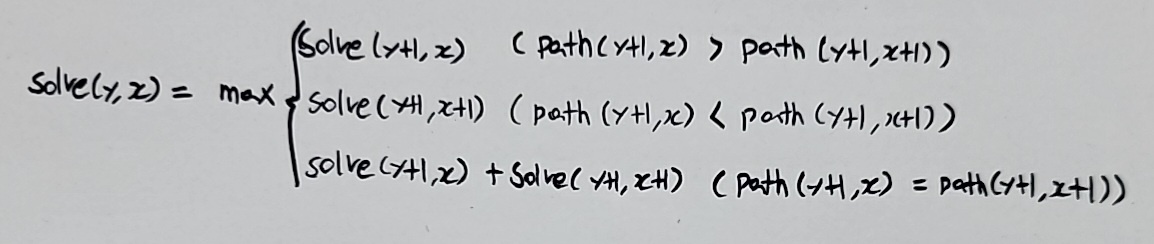 solve(y+1,x) (path(y+1,x) > path(y+1,x+1))
solve(y,x) = max { solve(y+1,x+1) (path(y+1,x) < path(y+1,x+1))
solve(y+1,x) + solve(y+1,x+1) (path(y+1,x) = path(y+1,x+1))